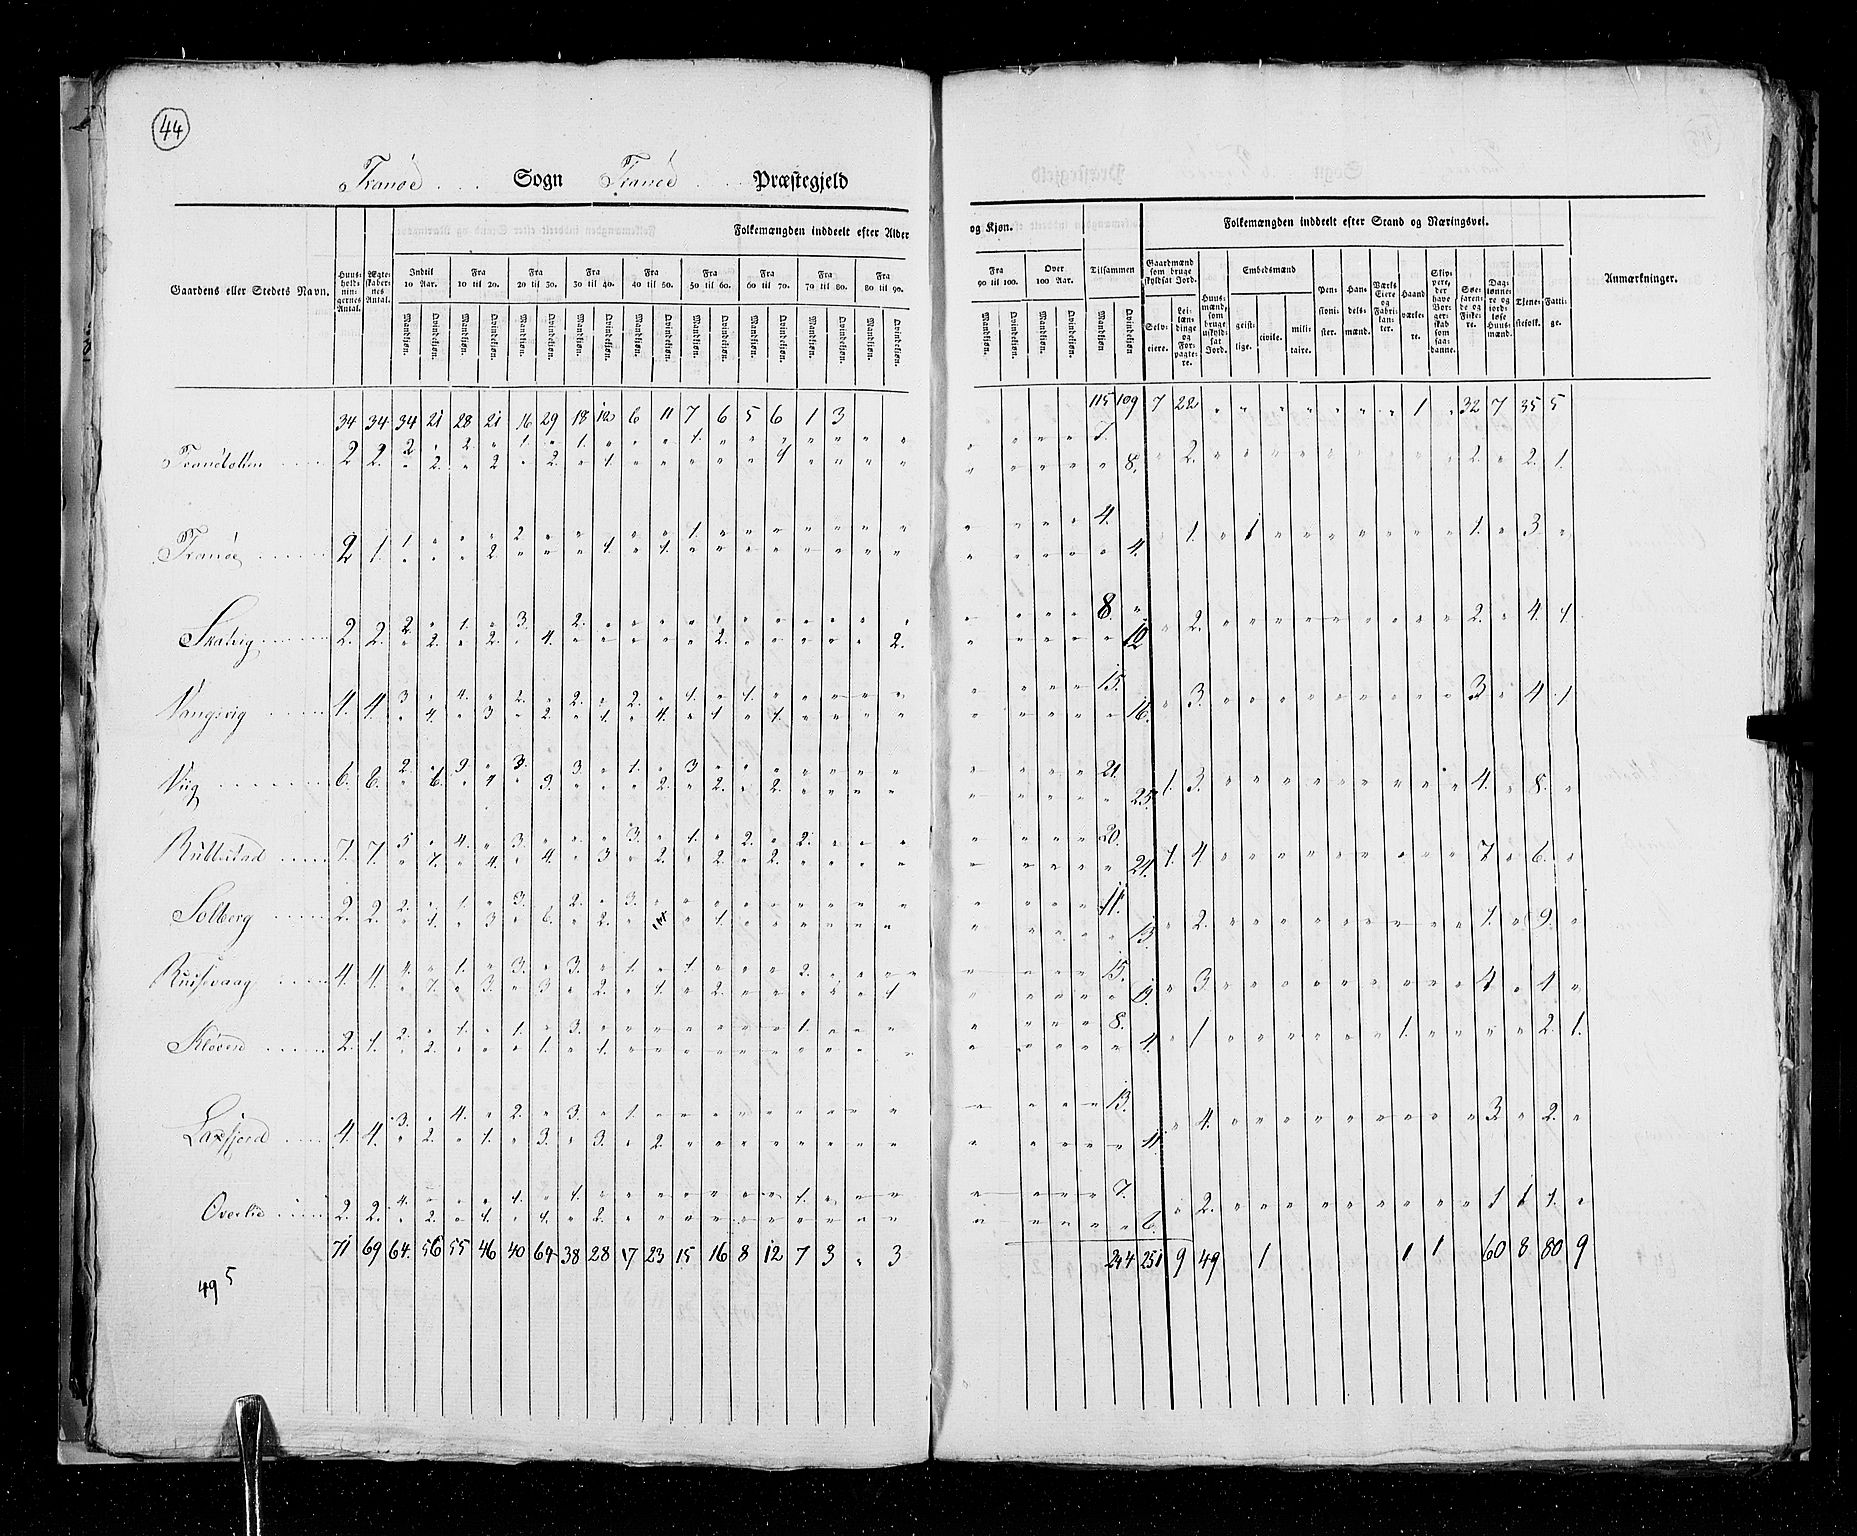 44
Tranöe Sogn Tranöe Præstegjeld
Gaardens eller Stedets Navn.
Huus-holdnin-gernes Antal.
Ægte-skaber-nes Antal.
Folkemængden inddeelt efter Alder
og Kjøn.
Indtil 10 Aar.
Fra 10 til 20.
Fra 20 til 30.
Fra 30 til 40.
Fra 40 til 50.
Fra 50 til 60.
Fra 60 til 70.
Fra 70 til 80.
Fra 80 til 90.
Fra 90 til 100.
Over 100 Aar.
Tilsammen
Mandkjøn. Qvindekjøn.
Folkemængden inddeelt efter Stand og Næringsvei.
Gaardmænd som bruge skyldsat Jord.
Selv-eiere.
Lei-læn-dinge og For-pagte-re.
Huus-mænd, som bruge uskyld-sat Jord.
Embedsmænd
geist-lige.
civile.
mili-taire.
Pen-sioni-ster.
Han-dels-mænd.
Værks Eiere og Fabri-kan-ter.
Haand værke-re.
Skip-pere, der have Bor-ger-skab som saa-danne.
Søe-faren-de og Fiske-re.
Dag-lønne-re og jord-løse Huus-mænd.
Tjene-stefolk.
Fatti-ge.
Anmærkninger.
34 34 34 21 28 21 16 29 18 12 6 11 7 6 5 6 1 3 115 109 7 22 " " " " " " " 1 " 32 7 35 5
2 2. 2 " 2. " 1. " 1. " " " 1. " " " " " " " " " " " 7.
" 2. " 2 " 2. " 1. " " " " " 1 " " " " " " " " 8. " 2. " " " " " " " " " 2. " 2. 1.
Tranöe 2 1. 1. " " " 2 " " " " " 1. " " " " " " " " " " " 4.
" " " 2. " " " 1. " 1. " " " " " " " " " " " " 4. " 1. " 1 " " " " " " " 1. " 3 "
Skatvig 2. 2. 2. " 1. " 3. " 2. " " " " " " " " " " " " " " " 8.
" 2. " 2. " 4. " " " " " 2. " " " " " 2. " " " " 12 " 2. " " " " " " " " " 2. " 4. 1
Vangsvig 4. 4. 3 " 4. " 2. " 2. " 2. " 1. " 1. " " " " " " " " " 15.
" 4. " 3 " 2. " 1. " 4. " 1. " 1. " " " " " " " " 16. " 3. " " " " " " " " " 3 " 4 1
Viig 6. 6. 2. " 9 " 3. " 3. " 1. " 3 " " " " " " " " " " " 21.
" 6. " 4 " 9. " " " 2. " 2. " 2. " " " " " " " " 25. 1. 3. " " " " " " " " " 4. " 8. "
Rubbestad 7. 7. 5 " 4. " 3. " " " 3. " 1. " 2. " 2. " " " " " " " 20.
" 7. " 4. " 4. " 3 " 2. " 2. " 2. " " " " " " " " 24. 1. 4 " " " " " " " " " 7 " 6. "
Solberg 2. 2. 2. " 1. " 3. " 2. " 3. " " " " " " " " " " " " " 11.
" 1. " 3 " 6. " 2. " " 1. " " " " " " " " " " 13. " 2. " " " " " " " " " 1. " 9. "
4. 4. 4. " 1. " 3. " 3. " 1. " 1. " " " 2. " " " " " " " 15.
" 7. " 3. " 3 " 2. " 1. " 2. " " " " " 1 " " " " 19. " 3. " " " " " " " " " 4 " 4 "
Klöven 2. 1. 2. " 1. " 1. " 3. " " " " " " " 1. " " " " " " " 8.
" 2. " " " 1. " 1. " " " " " " " " " " " " " " 4. " 1 " " " " " " " 1. " " " 2. 1.
Laxfjord 4. 4. 3. " 4. " 2. " 3. " 1. " " " " " " " " " " " " " 13.
" 2. " 1. " 3. " 3. " 2. " " " " " " " " " " " " 11. " 4. " " " " " " " " " 3. " 2. "
Overlid 2. 2. 4. " " " 1. " 1. " " " " " " " 1. " " " " " " " 7.
" 2. " 1. " 1. " 2. " " " " " " " " " " " " " " 6. " 2. " " " " " " " " " 1 1 1. "
71 69 64. 56 55 46 40 64 38 28 17 23 15 16 8 12 7 3 " 3 244 251 9 49 1 1 1 60 8 80 9
495